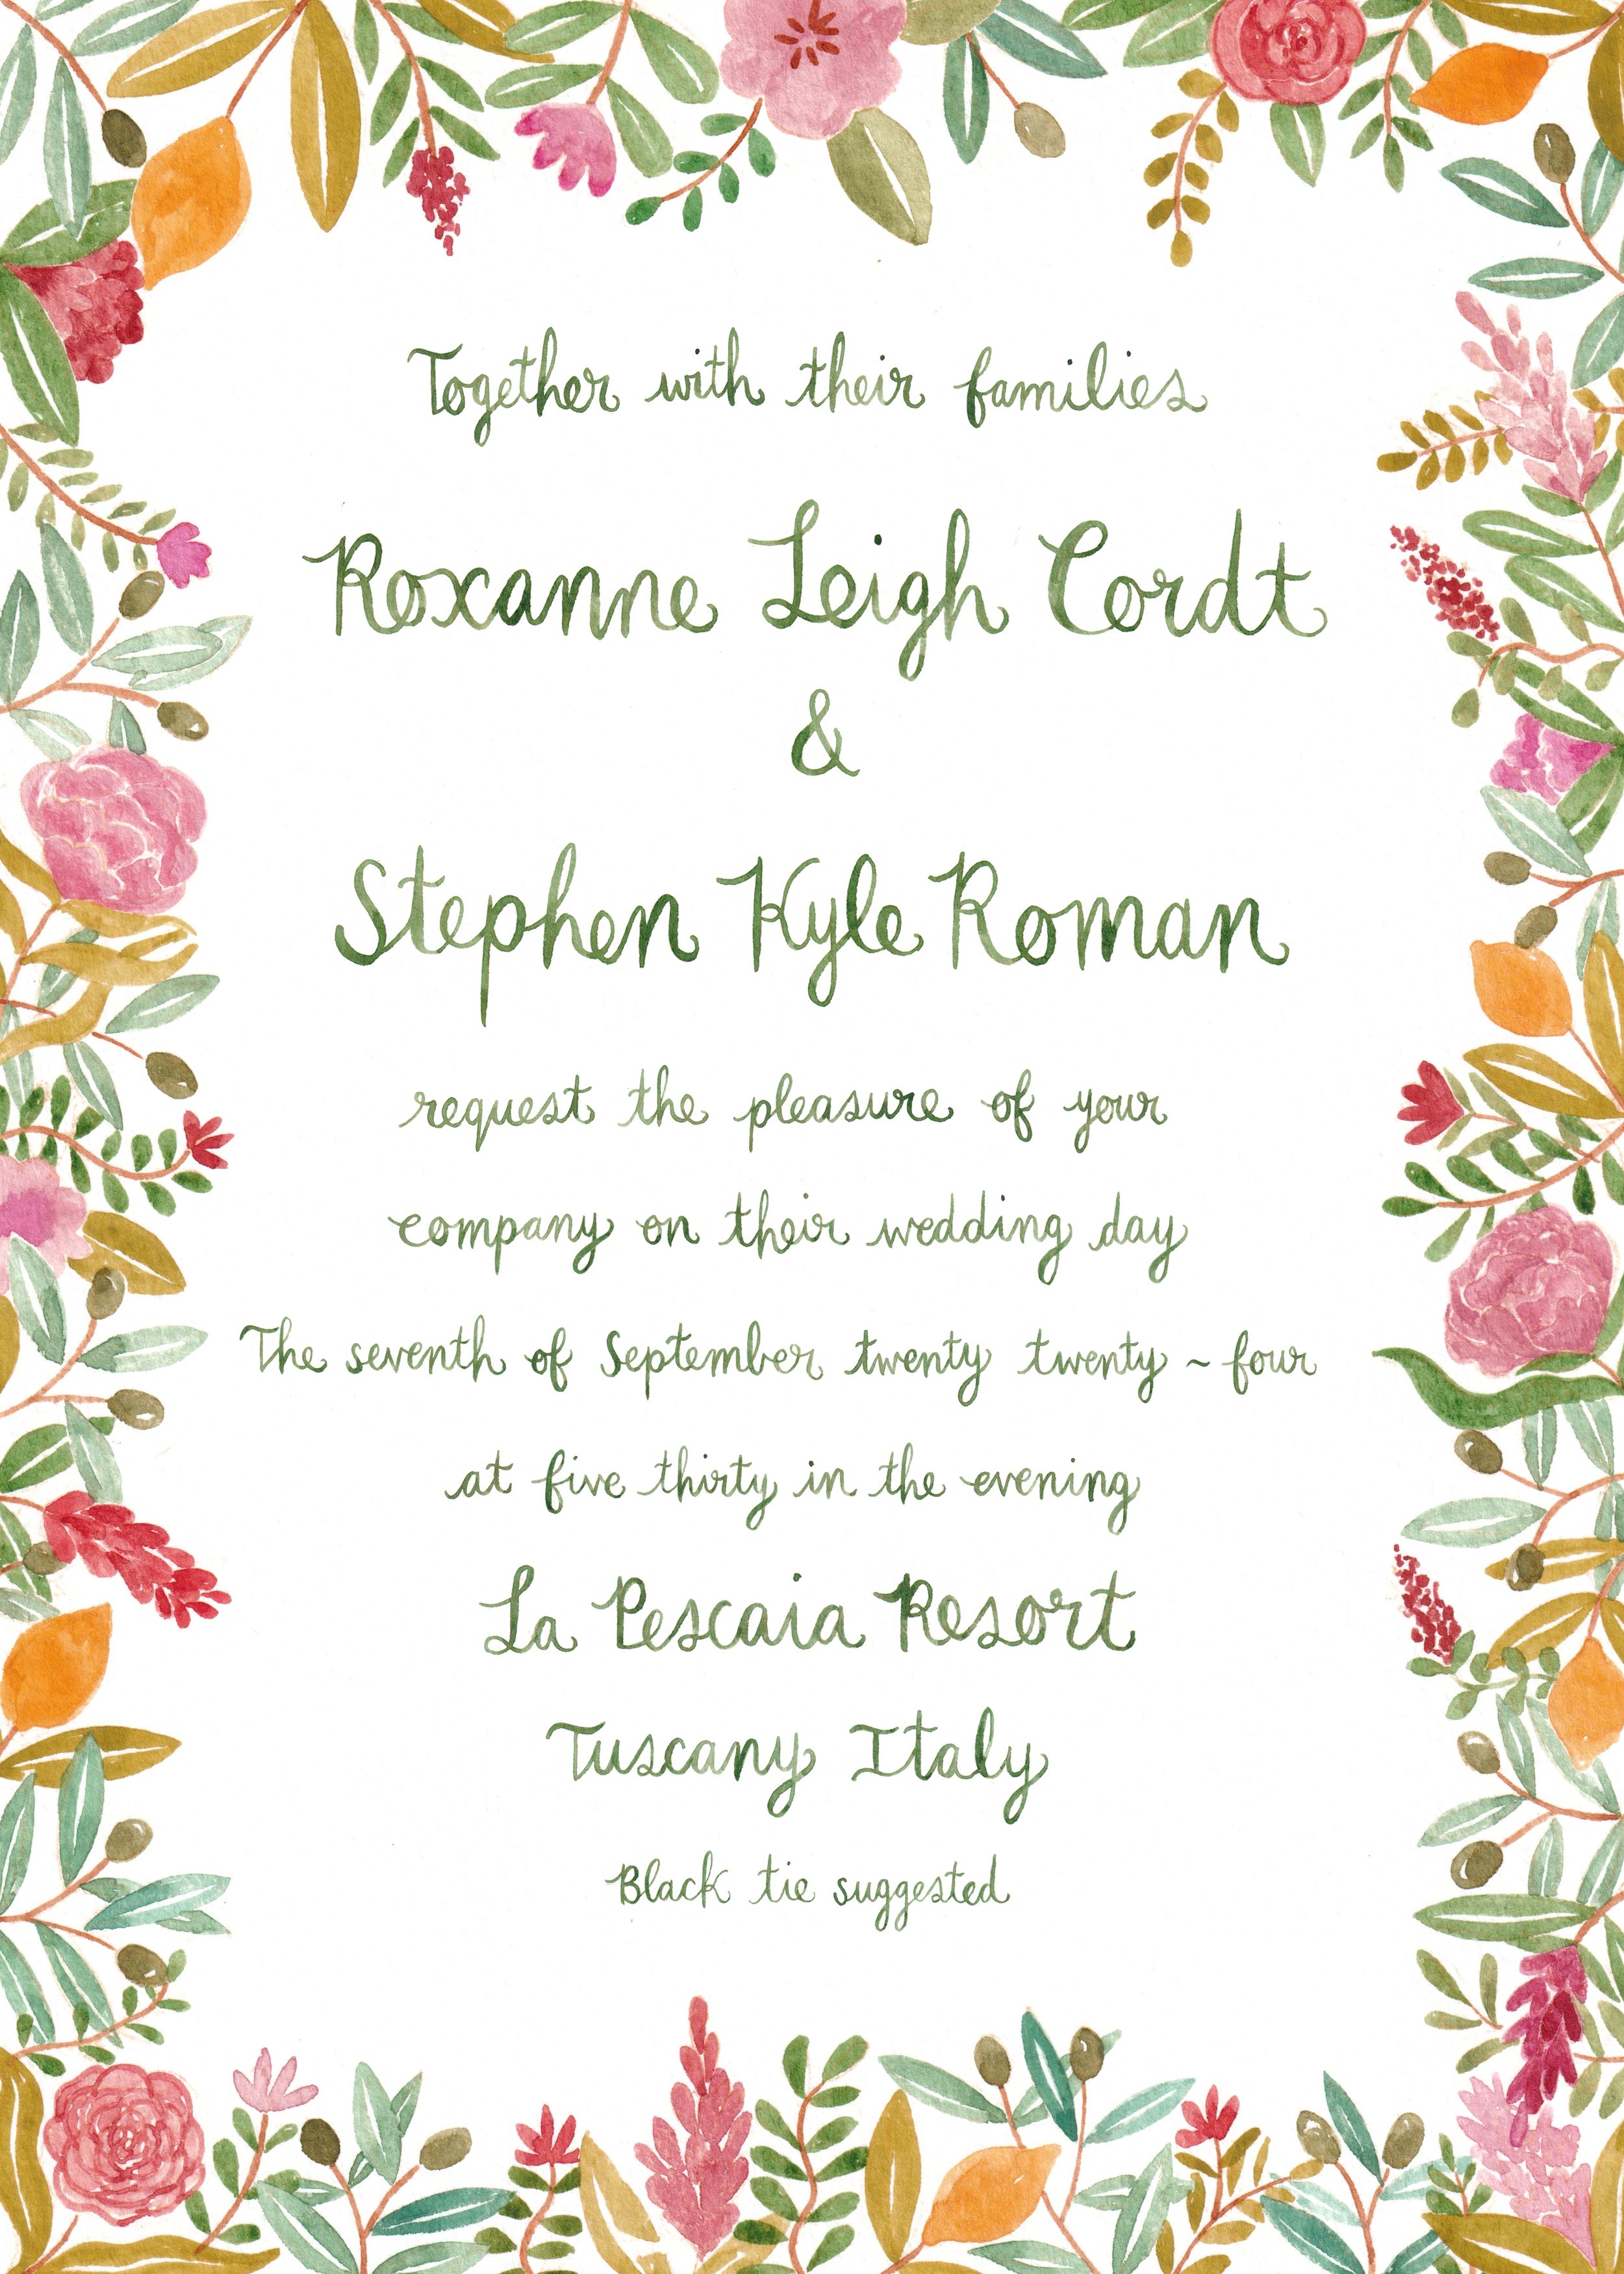 Together with their families
Roxanne Leigh Cordt
&
Stephen Kyle Roman
request the pleasure of your
company on their wedding day
The seventh of September twenty twenty ~ four
at five thirty in the evening
La Pescaia Resort
Tuscany Italy
Black tie suggested